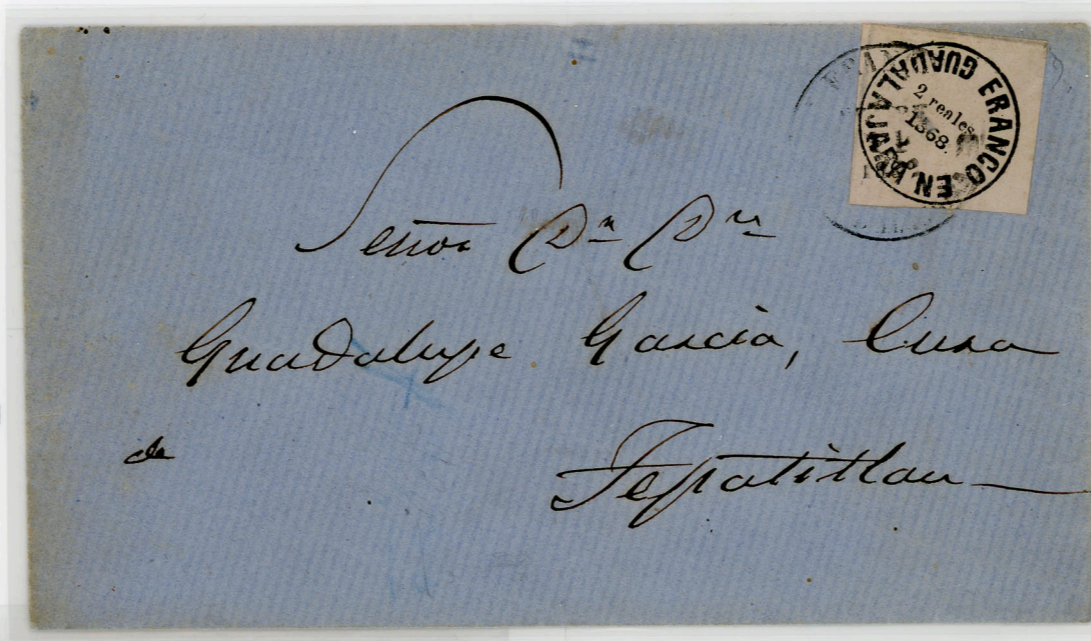 FRANCO EN GUADALAJARA
2 reales
1868.
Señor Dn Dn
Guadalupe Garcia, Cura
de Tepatitlan